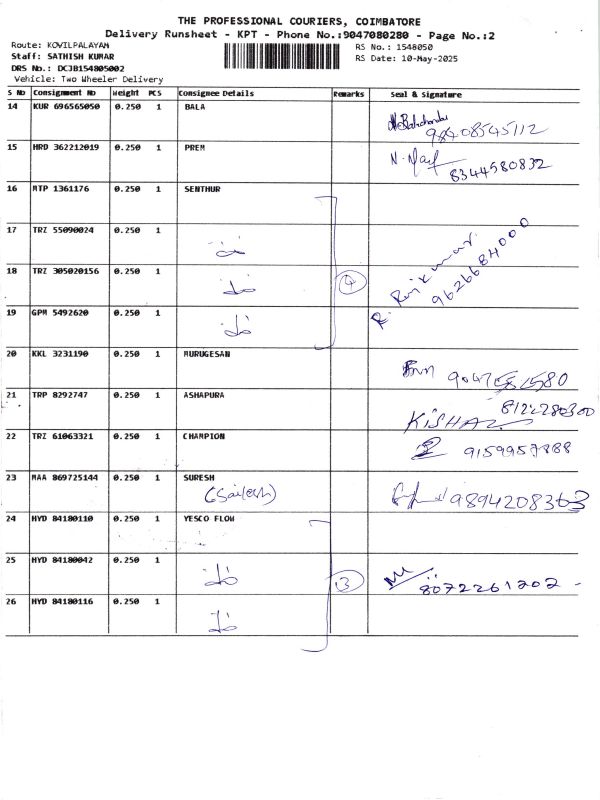 THE PROFESSIONAL COURIERS, COIMBATORE
Delivery Runsheet - KPT - Phone No.:9047080280 - Page No.:2
Route: KOVILPALAYAM
RS No.: 1548050
Staff: SATHISH KUMAR
RS Date: 10-May-2025
DRS No.: DCJB154805002
Vehicle: Two Wheeler Delivery
S No Consignment No Weight PCS Consignee Details Remarks Seal & Signature
14 KUR 696565050 0.250 1 BALA
98408545112
15 HRD 362212019 0.250 1 PREM
8344580832
16 MTP 1361176 0.250 1 SENTHUR
17 TRZ 55090024 0.250 1
18 TRZ 305020156 0.250 1 4 R. Rajkumar
9626684000
19 GPM 5492620 0.250 1
20 KKL 3231190 0.250 1 MURUGESAN
21 TRP 8292747 0.250 1 ASHAPURA
8122280300
22 TRZ 61063321 0.250 1 CHAMPION 9159957888
23 MAA 869725144 0.250 1 SURESH
(Sailesh) 9894208363
24 HYD 84180110 0.250 1 YESCO FLOW
25 HYD 84180042 0.250 1 3 8072261202
26 HYD 84180116 0.250 1